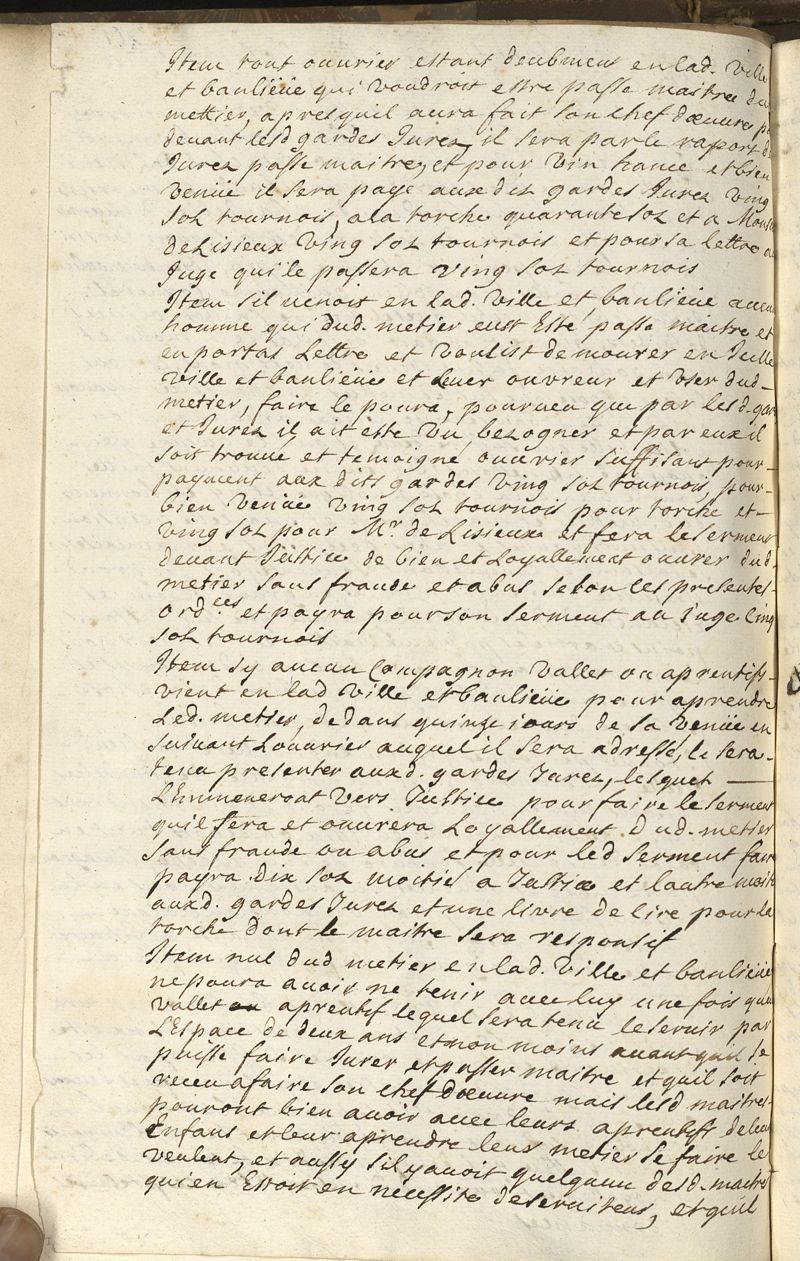 Item tout ouurier estant deubment en lad. ville
et banlieüe qui voudroit estre passe maitre du
mettier, apres quil aura fait son chef dœuure
deuant lesd gardes Jurez, il sera par le raport d
Jurez passe maitre, et pour vin hance et bien
venüe il sera paye aux dis gardes Jurez ving
solz tournois, a la torche quarante solz et a Mons
de Lisieux ving solz tournois et pour sa lettre au
Juge qui le passera ving solz tournois
Item sil uenoit en lad. ville et banlieüe aucun
homme qui dud. metier eust Esté passe maitre et
en portas Lettre et voulist demourer en Jcelle
ville et banlieüe et leuer ouvreur et vser dud
metier, faire le poura, pourueu que par lesd. gar
et Jurez il ait este vu besogner et par eux il
soit trouue et temoigne ouurier suffisant pour
payment aux dits gardes ving solz tournois, pour
bien venüe ving solz tournois pour torche et
ving solz pour Mr. de Lisieux et fera le serment
deuant Justice de bien et Loyallement ouurer dud.
metier sans fraude et abus selon les presentes
ordces et payra pour son serment au Juge Cinq
solz tournois
Item sy aucun Compagnon vallet ou aprentifs
vient en lad ville et banlieüe pour aprendre
Led. metier, dedans quinze iours de sa venüe en
suiuant Louurier auquel il sera adresse, le sera
tenu presenter auxd. gardes Jurez, lesquel
L'Emmeneront vers Justice pour faire le serment
quil fera et ouurera Loyallement dud. metier
sans fraude ou abus et pour led serment faire
payra dix solz moitié a Justice et lautre moiti
auxd. gardes Jurez et une livre de cire pour la
torche dont le maitre sera responsif
Item nul dud metier en lad. ville et banlieüe
ne poura auoir ne tenir auec luy une fois quun
vallet ou aprentif lequel sera tenu le seruir par
L'Espace de deux ans et non moins auant quil se
puisse faire Jurer et passer maitre et quil soit
receu a faire son chef dœuure mais lesd maitres
pouront bien auoir auec leurs aprentifs de leur
Enfans et leur aprendre leur metier se faire le
veulent, et aussy sil y auoit quelquun desd. maitres
qui en Estoit en necessite de seruiteur, et quil